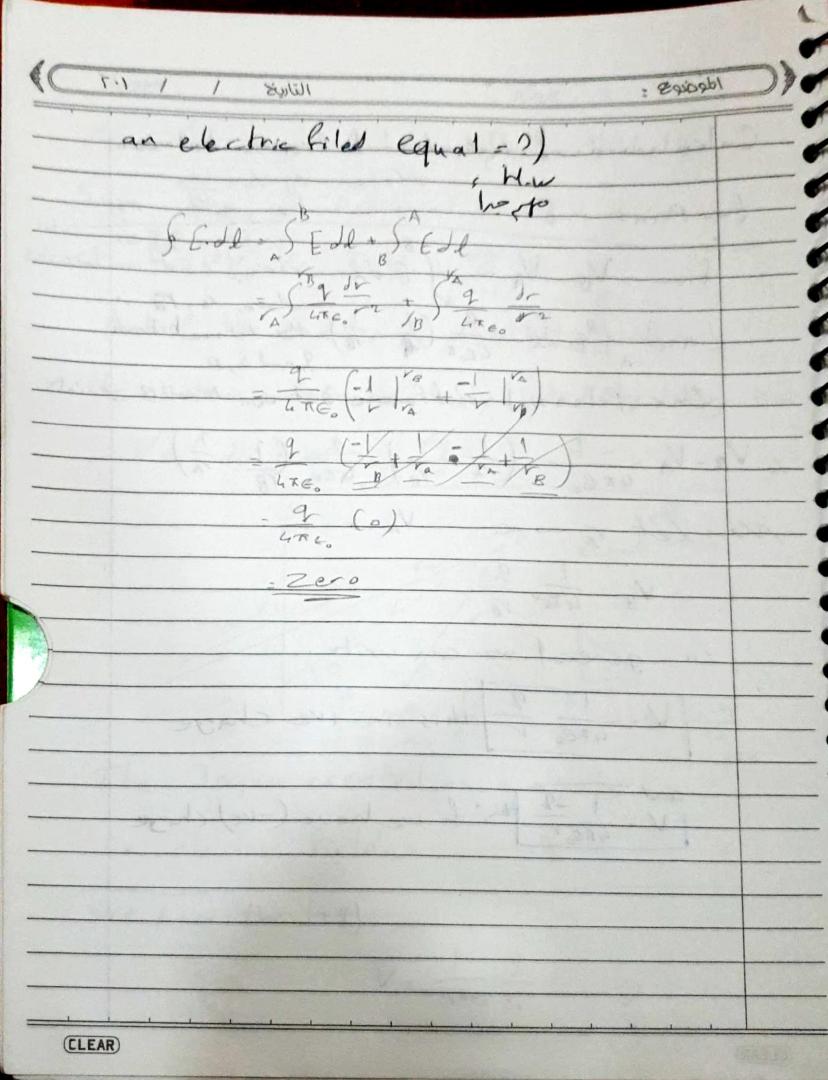 الموضوع : التاريخ / / ٢٠١
an electric filed equal = ?)
, H.w
∮ E.dl = ∫_A^B E dl + ∫_B^A E dl
= ∫_{rA}^{rB} q/4πε₀ dr/r² + ∫_{rB}^{rA} q/4πε₀ dr/r²
= q/4πε₀ (-1/r |_{rA}^{rB} + -1/r |_{rB}^{rA})
= q/4πε₀ (-1/r_B + 1/r_a - 1/r_A + 1/r_B)
= q/4πε₀ (0)
= Zero
CLEAR